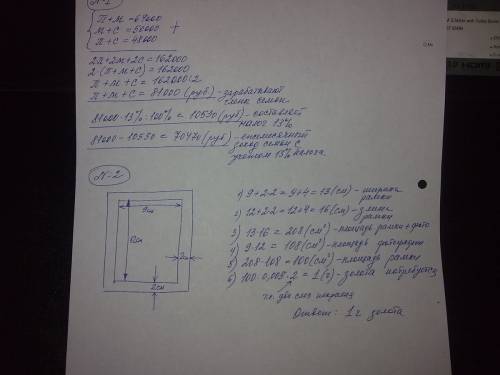 N-1
П+М=64000
М+С=50000
П+С=48000
+
2П+2М+2С=162000
2(П+М+С)=162000
П+М+С=162000:2
П+М+С=81000 (руб)-зарабатывают
члены семьи
81000·13%:100%=10530(руб)-составляет
налог 13%
81000-10530=70470(руб)-ежемесячный
доход семьи с
учётом 13% налога.
N-2
9см
12см
2см
2см
1) 9+2·2=9+4=13(см)-ширина
рамки
2) 12+2·2=12+4=16(см)-длина
рамки
3) 13·16=208(см²)-площадь рамки+фото
4) 9·12=108(см²)-площадь фотографии
5) 208-108=100(см²)-площадь рамки
6) 100·0,005·2=1(г)-золота потребуется
т.к. два слоя
Ответ: 1г золота